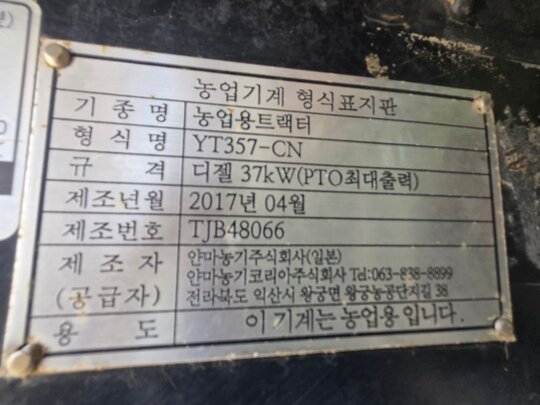 농업기계 형식표지판
기 종 명 농업용트랙터
형 식 명 YT357-CN
규 격 디젤 37kW(PTO최대출력)
제조년월 2017년 04월
제조번호 TJB48066
제 조 자 얀마농기주식회사(일본)
(공급자) 얀마농기코리아주식회사 Tel:063-838-8899
전라북도 익산시 왕궁면 왕궁농공단지길 38
용 도 이 기계는 농업용 입니다.